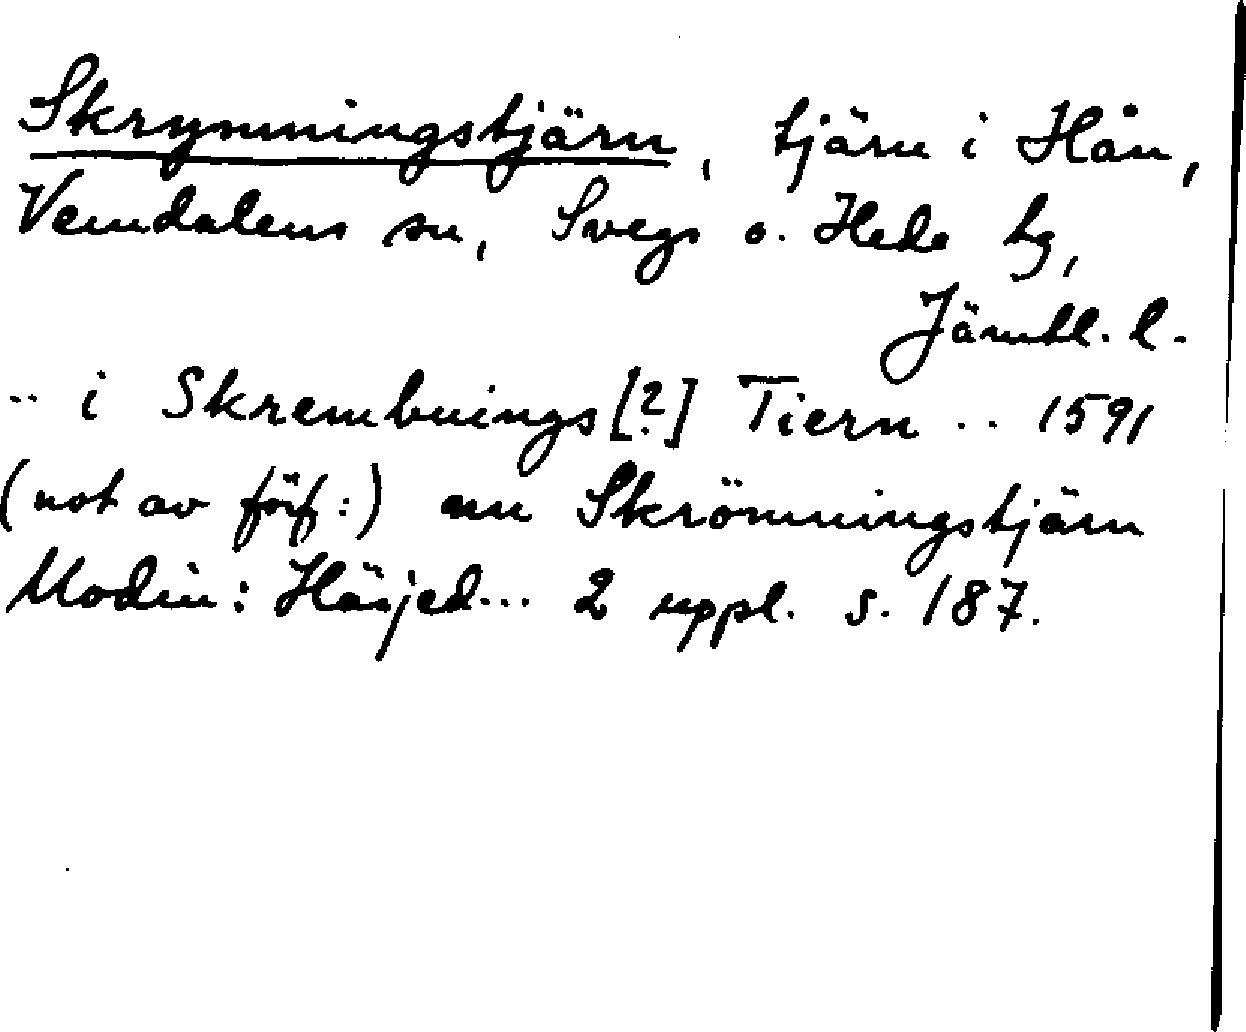 Skrymningstjärn, tjärn i Hån,
Vemdalens sn, Svegs o. Hede tg,
Jämtl. l.
.. i Skrembnings [?] Tiern .. 1591
(not av förf:) nu Skrömningstjärn
Modin: Härjed... 2 uppl. s. 187.